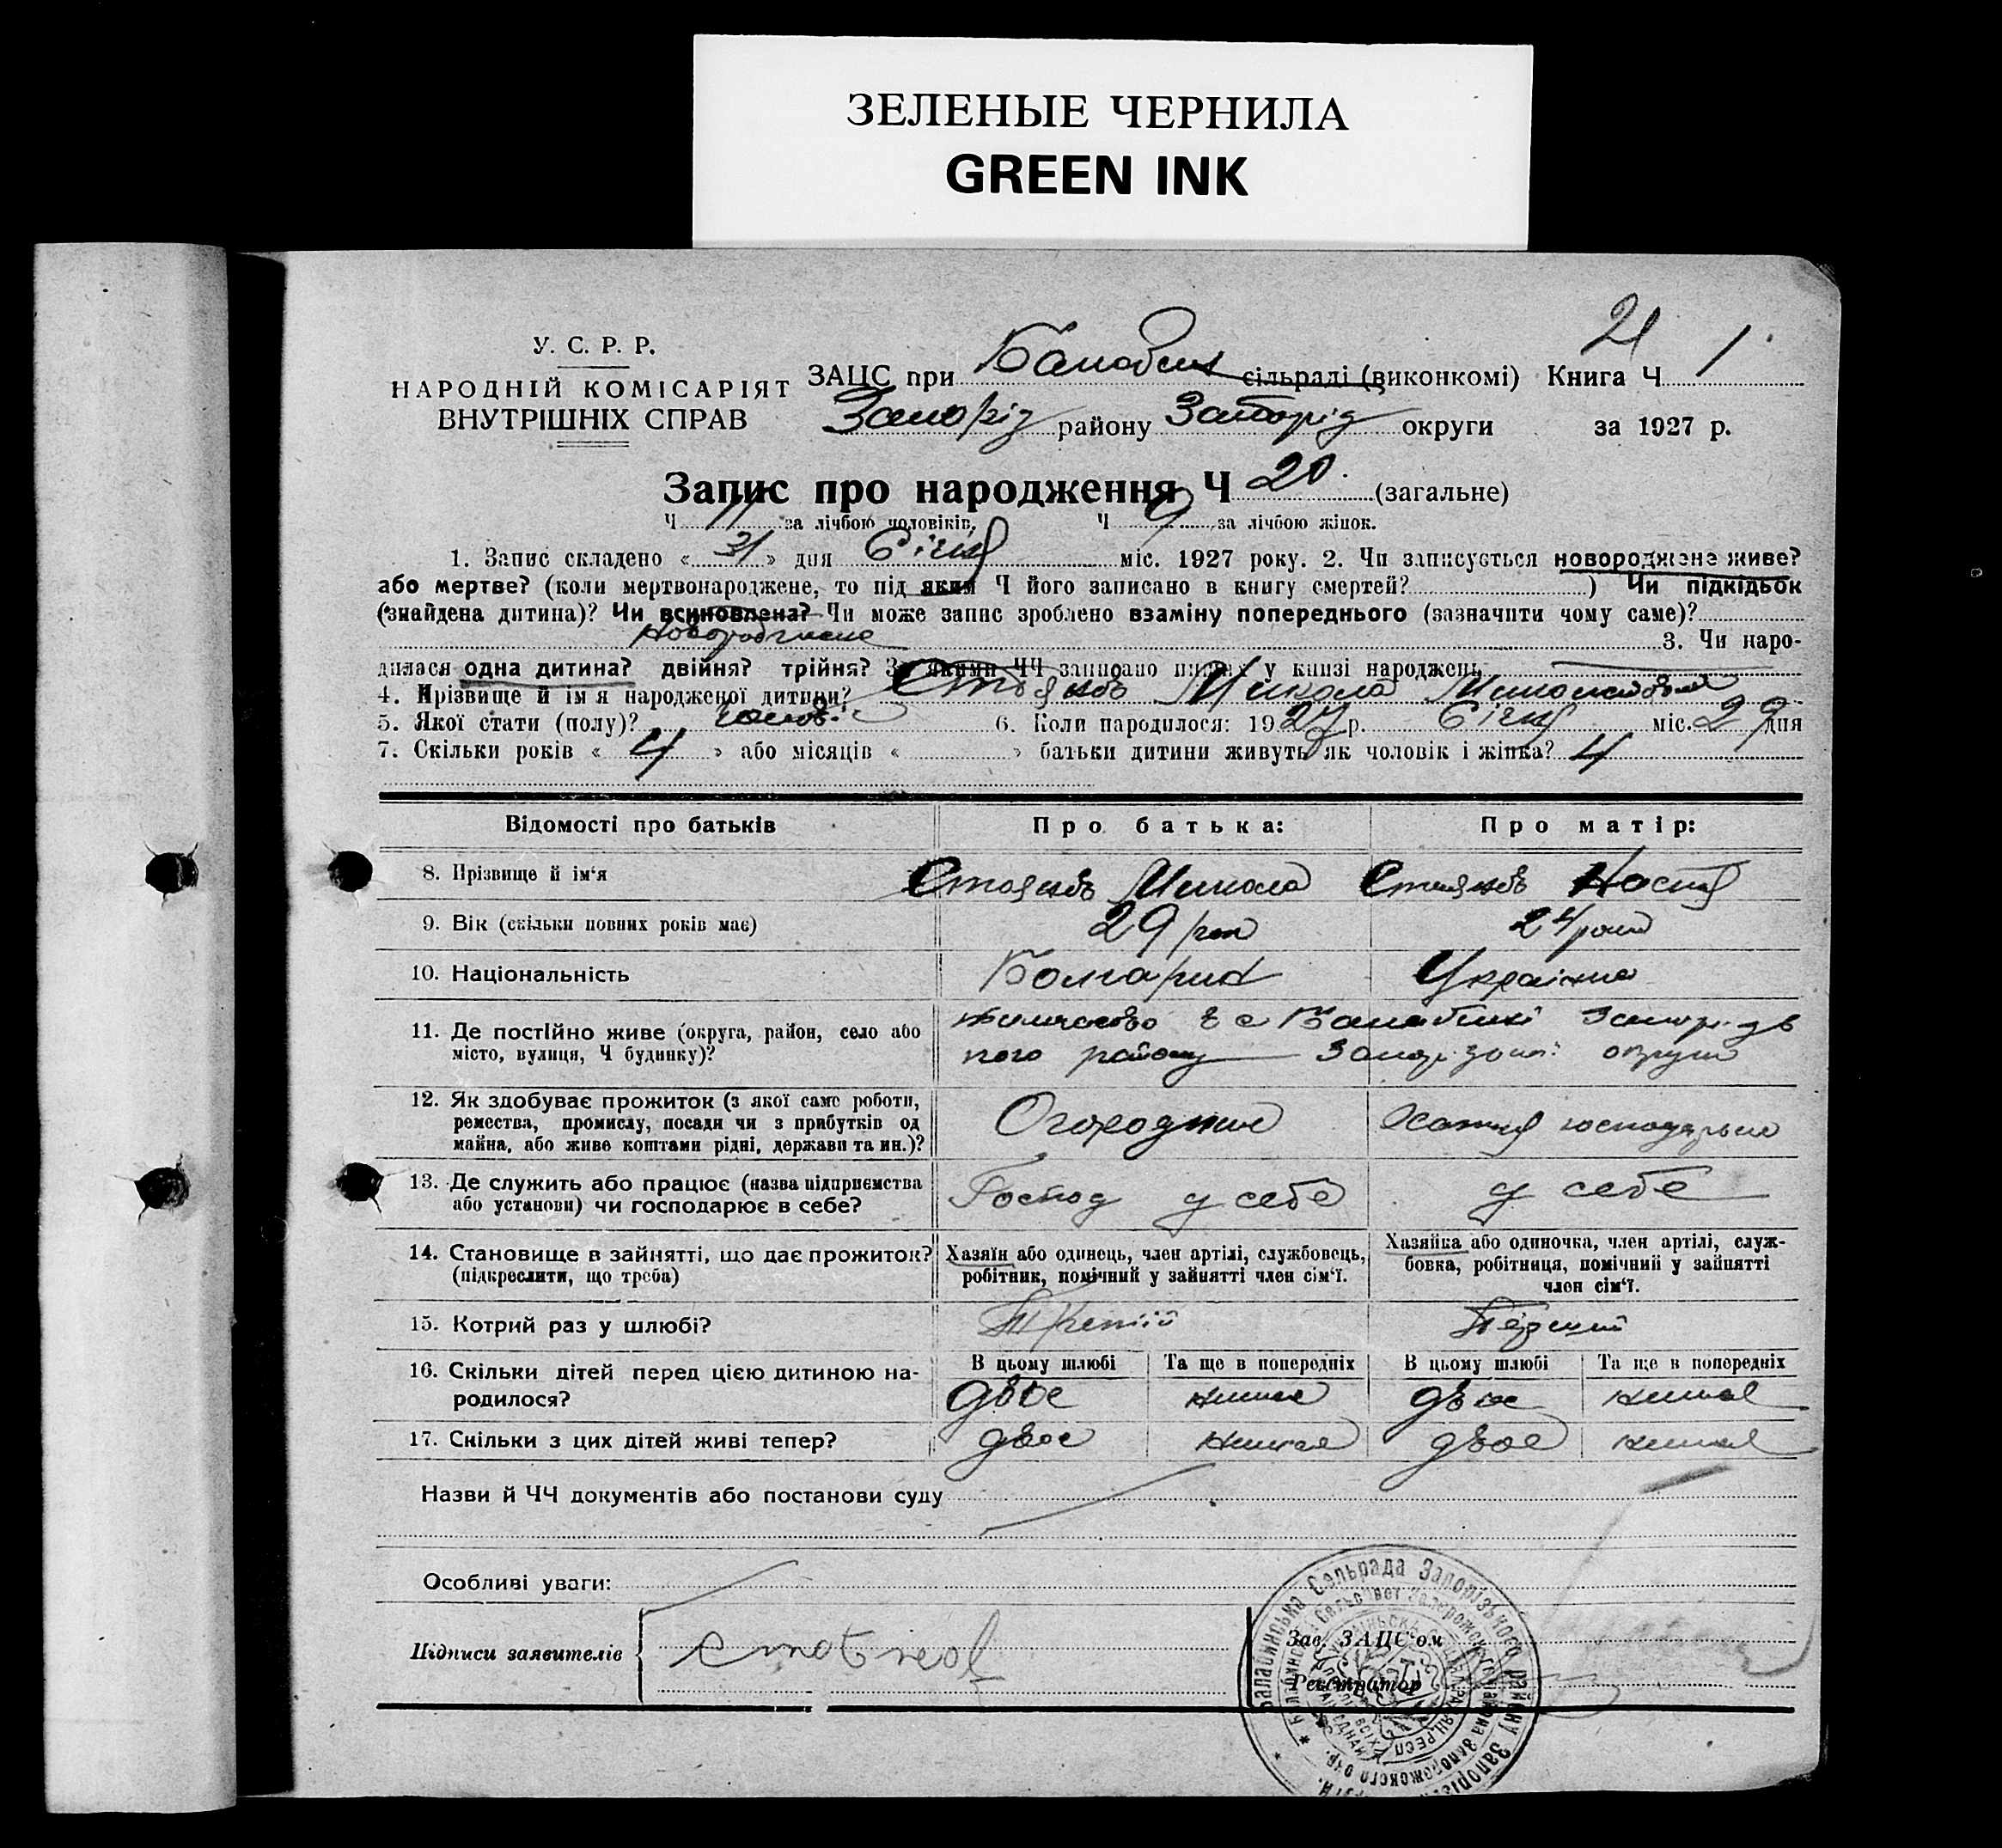 ЗЕЛЕНЫЕ ЧЕРНИЛА
GREEN INK
21
У. С. Р. Р.
НАРОДНІЙ КОМІСАРІЯТ
ВНУТРІШНІХ СПРАВ
ЗАЦС при сільраді (виконкомі) Книга Ч 1
Запоріз району Запоріз округи за 1927 р.
Запис про народження Ч 20. (загальне)
Ч 11 за лічбою чоловіків. Ч 9 за лічбою жінок.
1. Запис складено « 31 » дня Січня міс. 1927 року. 2. Чи записується новороджене живе?
або мертве? (коли мертвонароджене, то під яким Ч його записано в книгу смертей? ) Чи підкідьок
(знайдена дитина)? Чи всиновлена? Чи може запис зроблено взаміну попереднього (зазначити чому саме)?
Новороджене 3. Чи наро-
дилася одна дитина? двійня? трійня? За якими ЧЧ записано інших у книзі народжень
4. Прізвище й ім'я народженої дитини? Стоянов Микола Миколайович
5. Якої стати (полу)? чолов. 6. Коли народилося: 1927 р. Січня міс. 29 дня
7. Скільки років « 4 » або місяців « » батьки дитини живуть як чоловік і жінка? 4
Відомості про батьків Про батька: Про матір:
8. Прізвище й ім'я Стоянов Микола Стоянов Настя
9. Вік (скільки повних років має) 29 рок 24 роки
10. Національність Болгарин Українка
11. Де постійно живе (округа, район, село або
місто, вулиця, Ч будинку)?
району округи
12. Як здобуває прожиток (з якої саме роботи,
ремества, промислу, посади чи з прибутків од
майна, або живе коштами рідні, держави та ин.)?
Огородник Хатня господарка
13. Де служить або працює (назва підприємства
або установи) чи господарює в себе?
Господ у себе у себе
14. Становище в зайнятті, що дає прожиток?
(підкреслити, що треба)
Хазяїн або одинець, член артілі, службовець,
робітник, помічний у зайнятті член сім'ї.
Хазяйка або одиночка, член артілі, служ-
бовка, робітниця, помічний у зайнятті
член сім'ї.
15. Котрий раз у шлюбі? Третій Перший
16. Скільки дітей перед цією дитиною на-
родилося?
В цьому шлюбі Та ще в попередніх В цьому шлюбі Та ще в попередніх
двое нимає двое нимає
17. Скільки з цих дітей живі тепер? двое нимає двое нимає
Назви й ЧЧ документів або постанови суду
Особливі уваги:
Підписи заявителів
Зав. ЗАЦС'ом
Реєстратор
Балабинська Сельрада Запорізького району